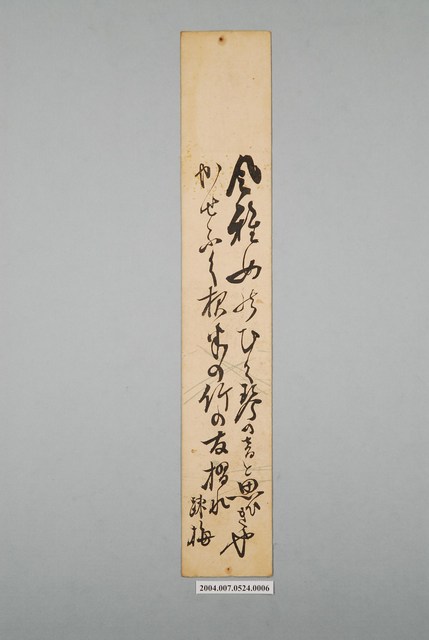 風雅女のひく琴の音と思ひきや
かせふく根来の竹の友摺れ
疎梅
2004.007.0524.0006